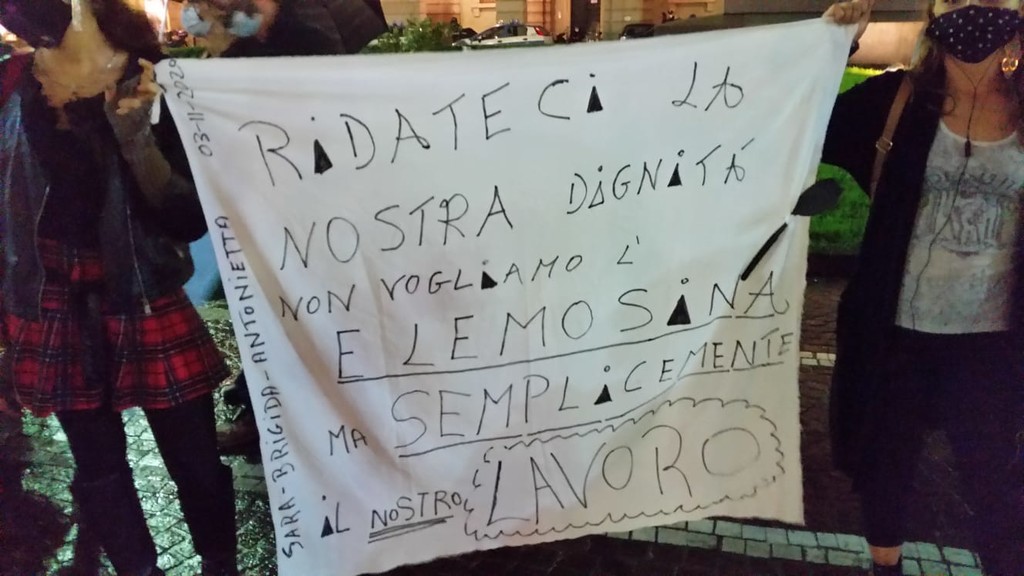 RiDATE Ci LA
NOSTRA DiGNiTÁ
NON VOGLiAMO L'
ELEMOSiNA
MA SEMPLiCEMENTE
iL NOSTRO LAVORO
SARA-BRIGIDA-ANTONIETTA 03-11-2220